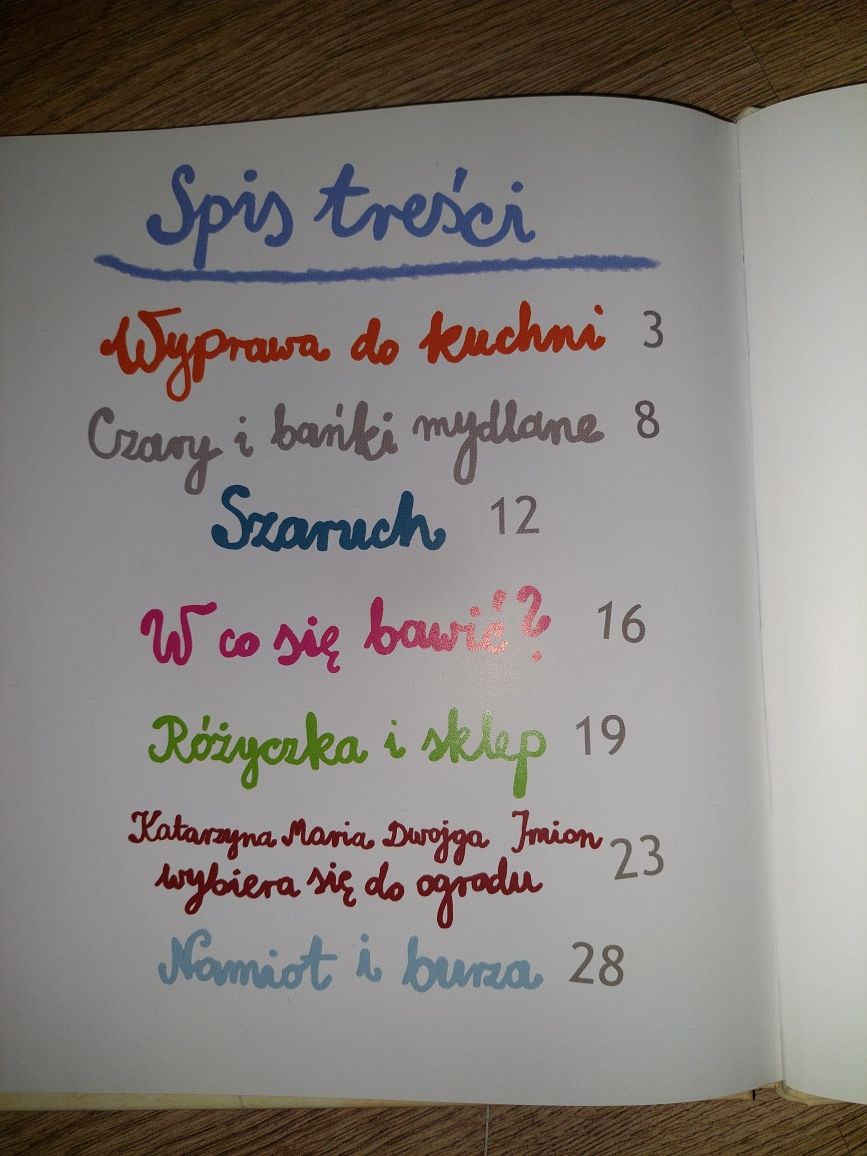 Spis treści
Wyprawa do kuchni 3
Czary i bańki mydlane 8
Szaruch 12
W co się bawić? 16
Różyczka i sklep 19
Katarzyna Maria Dwojga Imion
wybiera się do ogrodu 23
Namiot i burza 28